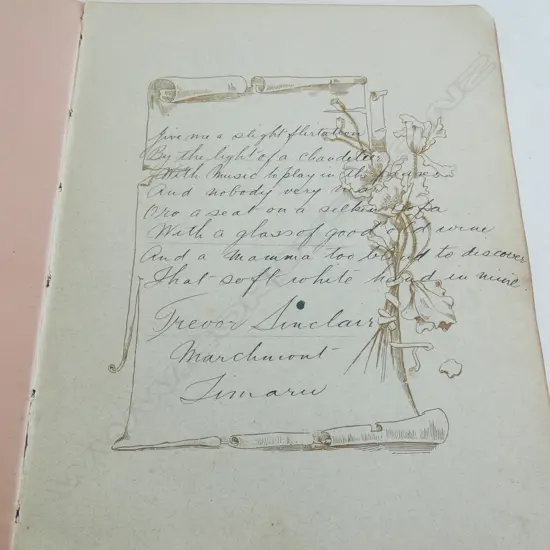 Give me a slight flirtation
By the light of a chandelier
With Music to play in the pauses
And nobody very near
Or a seat on a silken sofa
With a glass of good old wine
And a Mamma too blind to discover
That soft white hand in mine.
Trevor Sinclair
Marchmont
Timaru